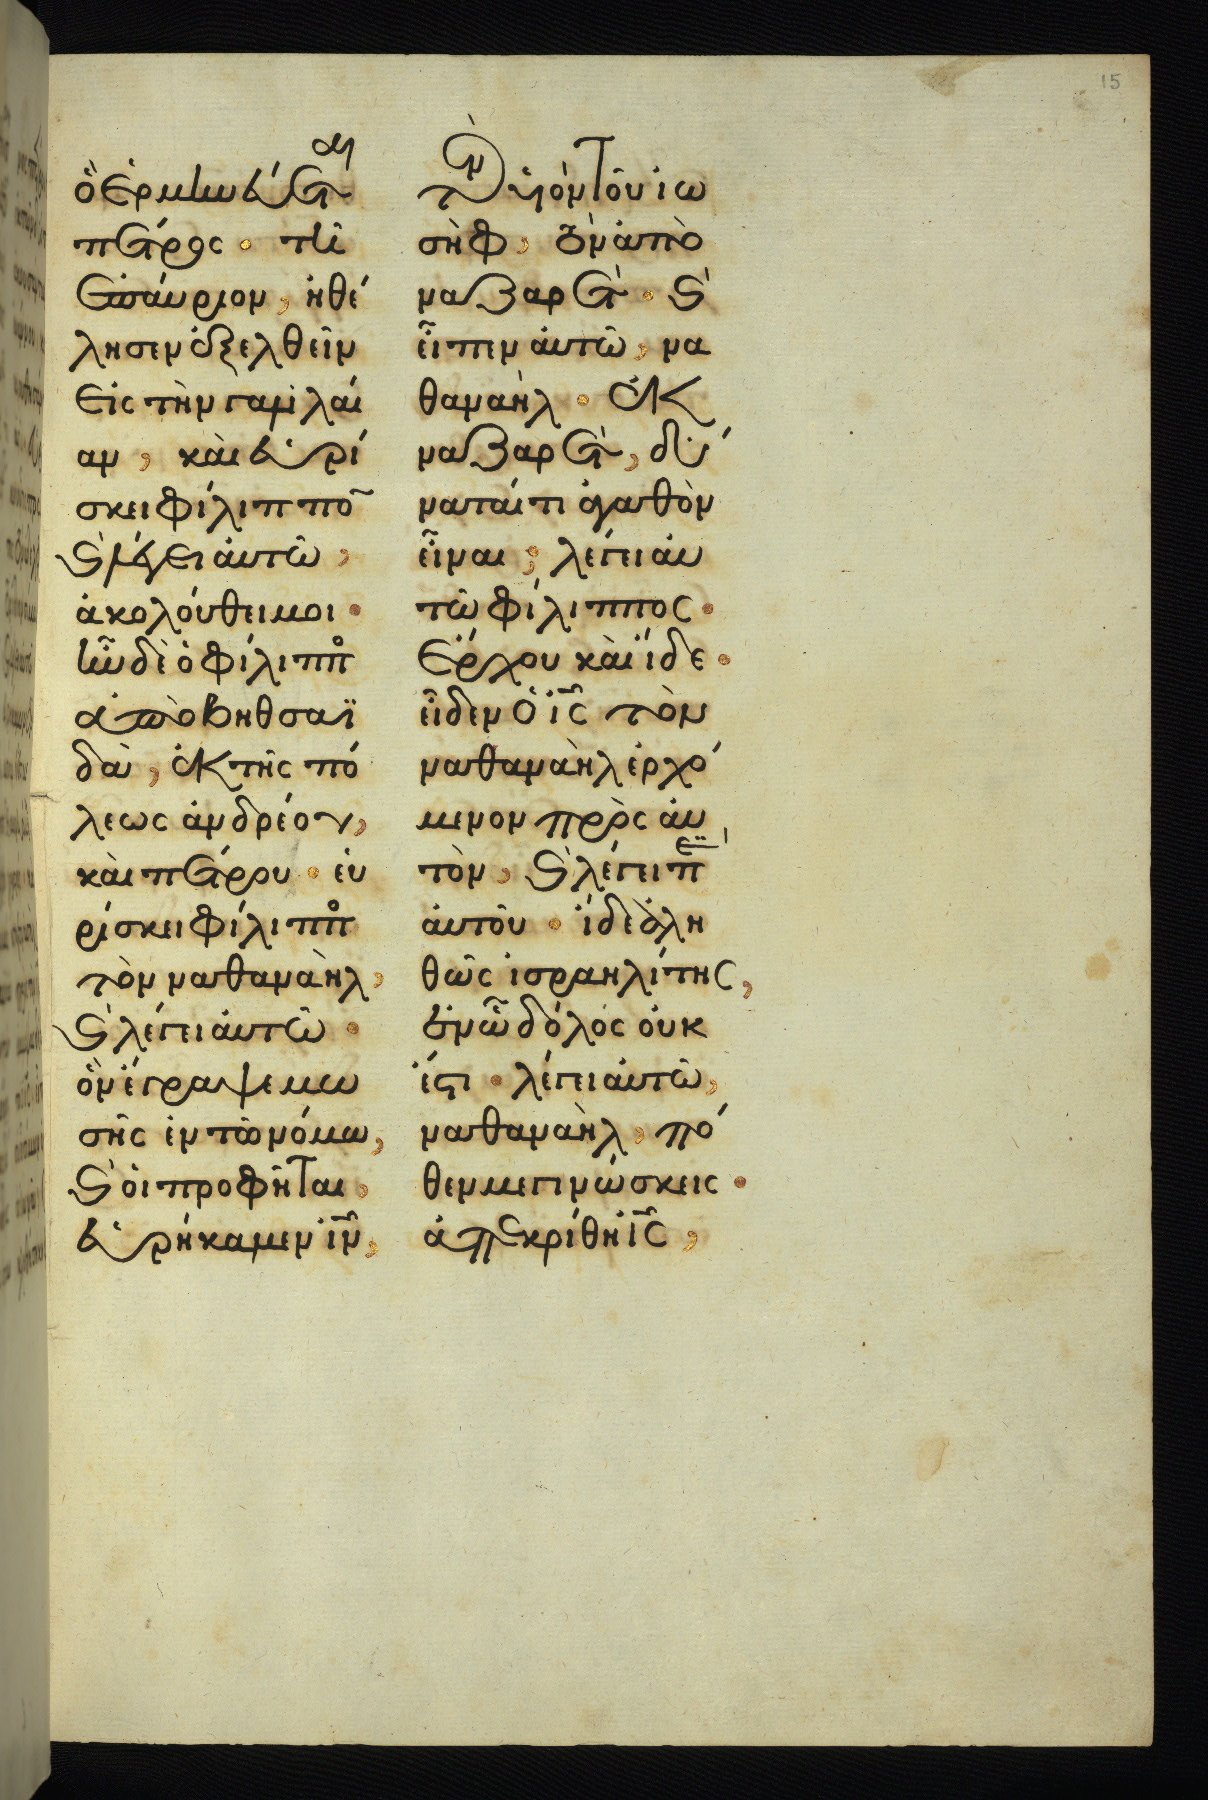 15
ὃ ἑρμηνεύεται
πέτρος · τῆ
ἐπαύριον, ἠθέ
λησεν ἐξελθεῖν
εἰς τὴν γαλιλαί
αν, καὶ εὑρί
σκει φίλιππο̃
κ̀ λέγει αὐτῶ,
ἀκολούθει μοι ·
ἦν δὲ ὁ φίλιππο
ἀπὸ βηθσαϊ
δὰ, ἐκ τῆς πό
λεως ἀνδρέου,
καὶ πέτρου · εὑ
ρίσκει φίλιππο
τὸν ναθαναὴλ,
κ̀ λέγει αὐτῶ ·
ὃν ἔγραψε μω
σῆς ἐν τῶ νόμω,
κ̀ οἱ προφῆται,
εὑρήκαμεν ἰ̅ν̅,
τὸν υἱὸν τοῦ ἰω
σὴφ, τὸν ἀπὸ
ναζαρέτ · κ̀
εἶπεν αὐτῶ, να
θαναὴλ · ἐκ
ναζαρὲτ, δύ
ναταί τι ἀγαθὸν
εἶναι ; λέγει αὐ
τῶ φίλιππος ·
ἔρχου καὶ ἴδε ·
εἶδεν ὁ ἰ̅ς̅ τὸν
ναθαναὴλ ἐρχό
μενον πρὸς αὐ
τὸν, κ̀ λέγει π̅ε̈
αὐτοῦ · ἴδε ἀλη
θῶς ἰσραηλίτης,
ἐν ὧ δόλος οὐκ
ἔστι · λέγει αὐτῶ,
ναθαναὴλ, πό
θεν με γινώσκεις ·
ἀπεκρίθη ἰ̅ς̅,